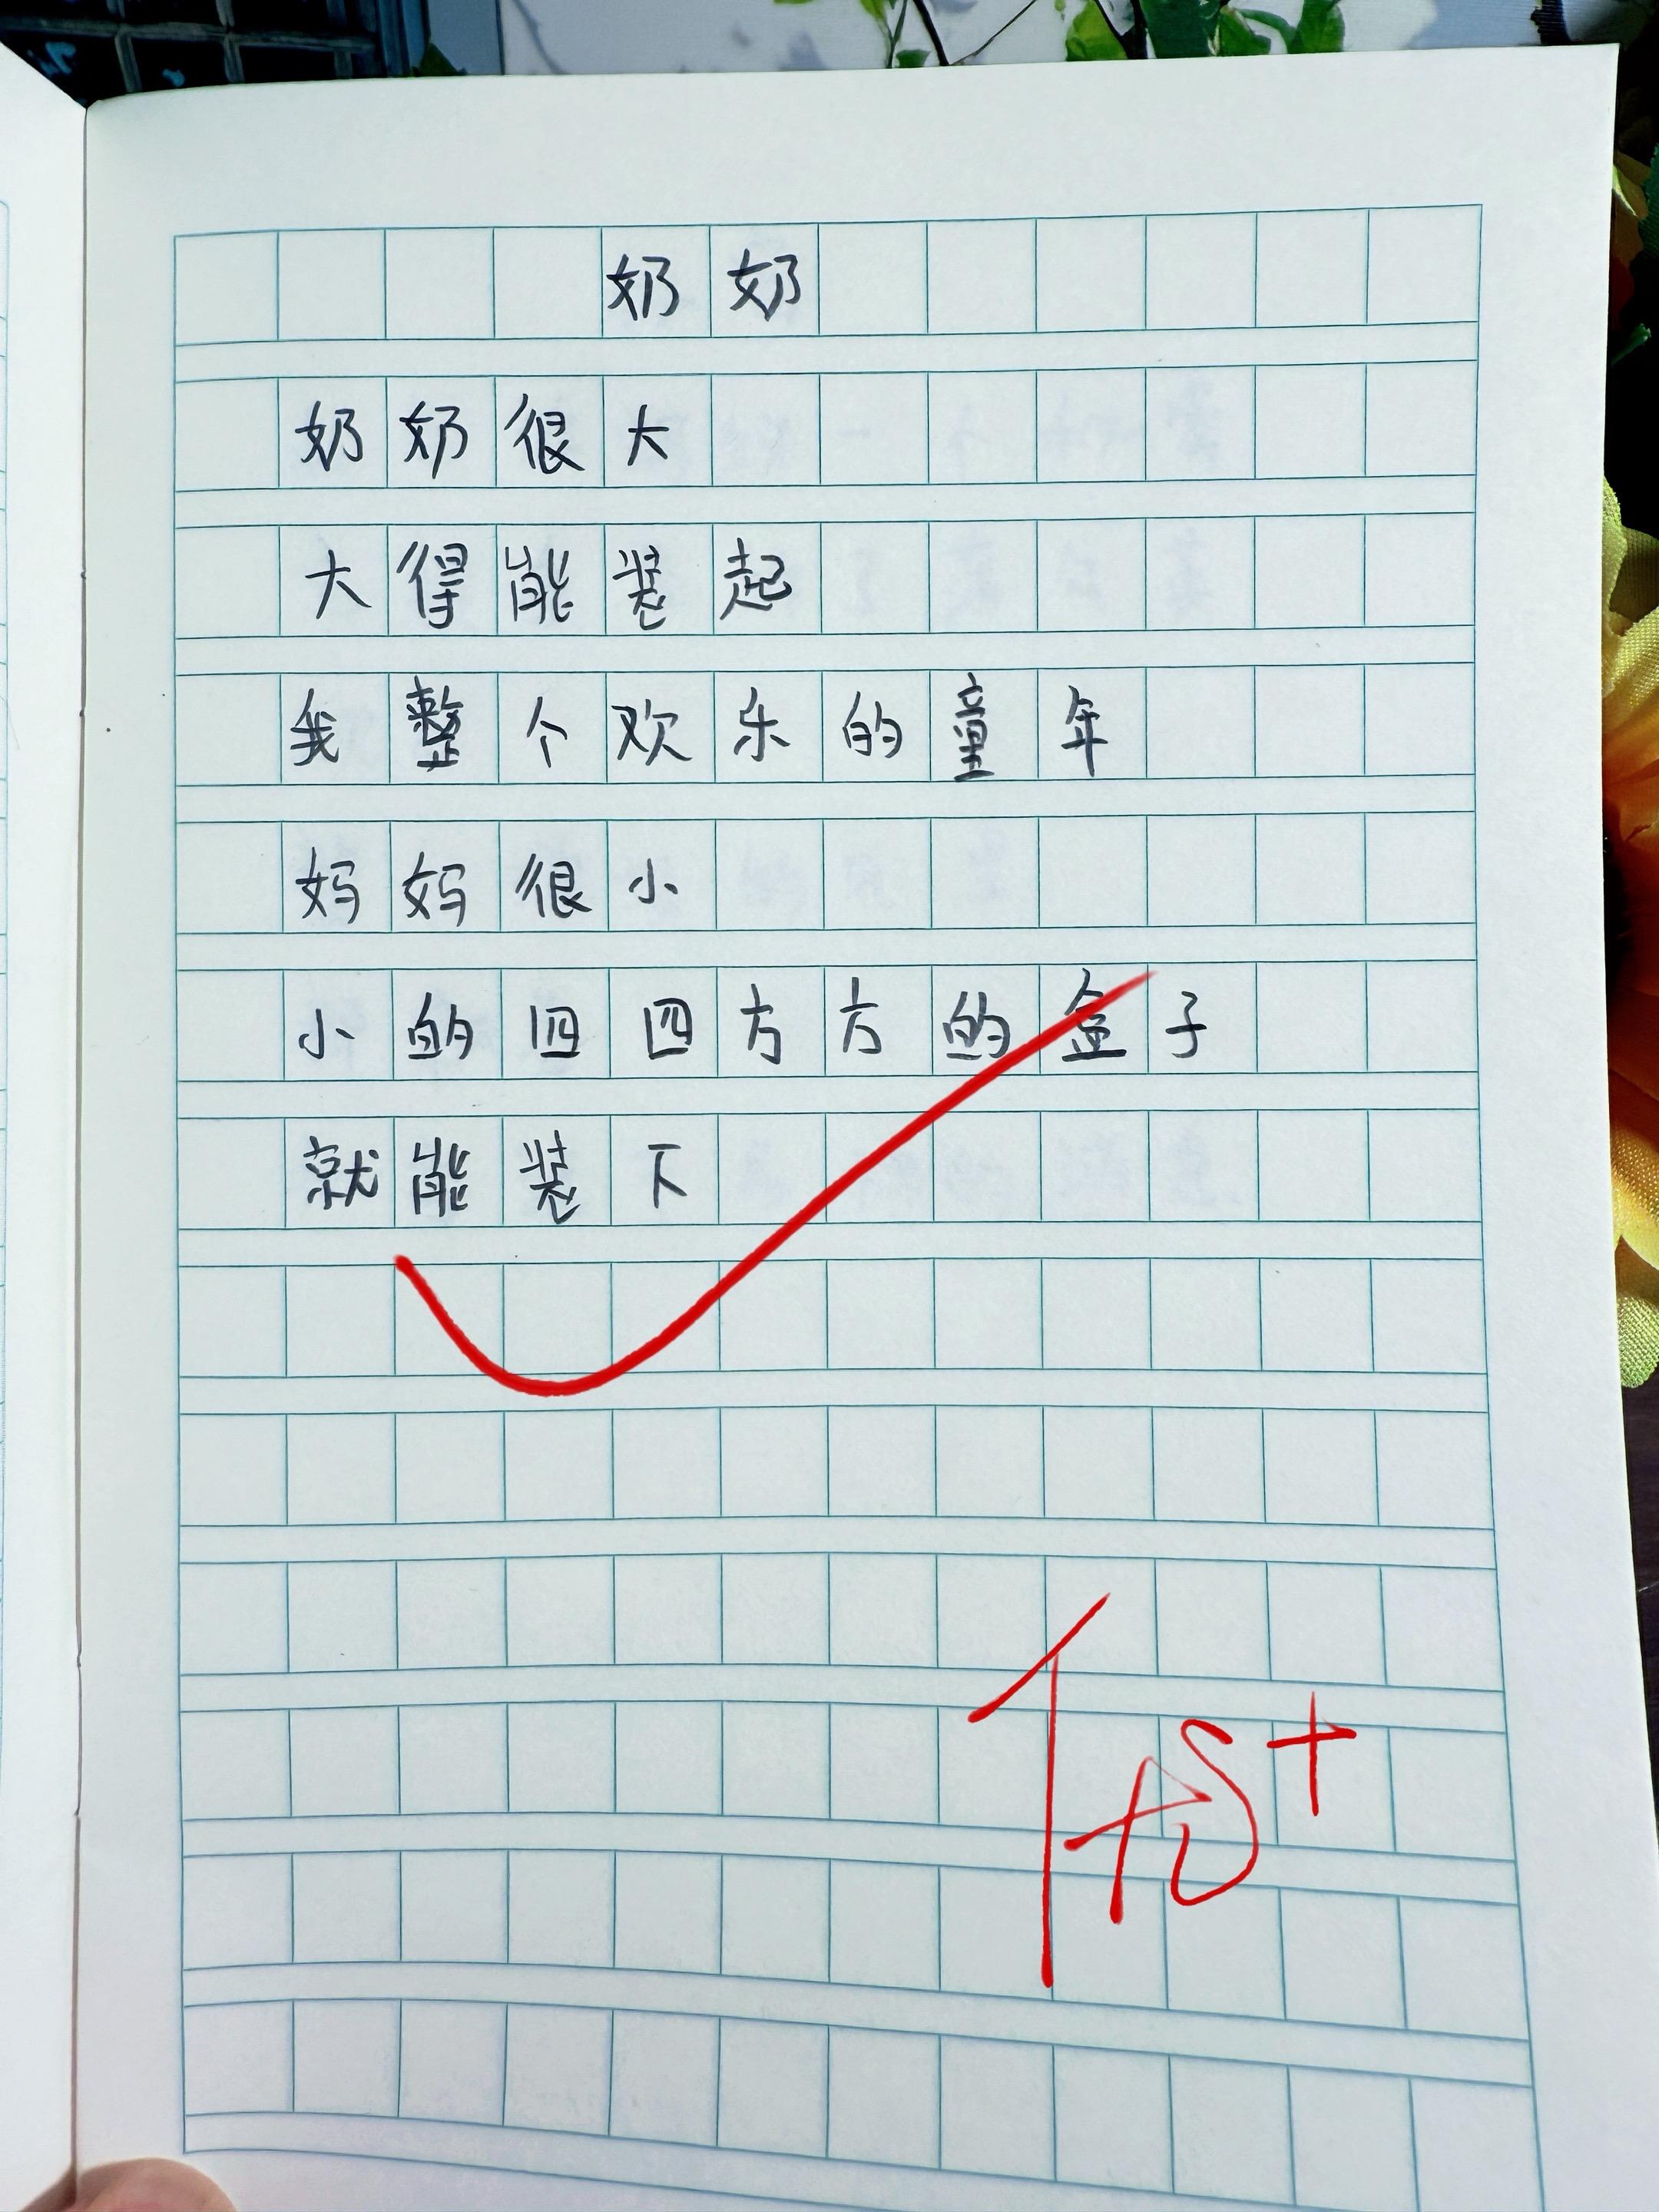 奶奶
奶奶很大
大得能装起
我整个欢乐的童年
妈妈很小
小的四四方方的盒子
就能装下